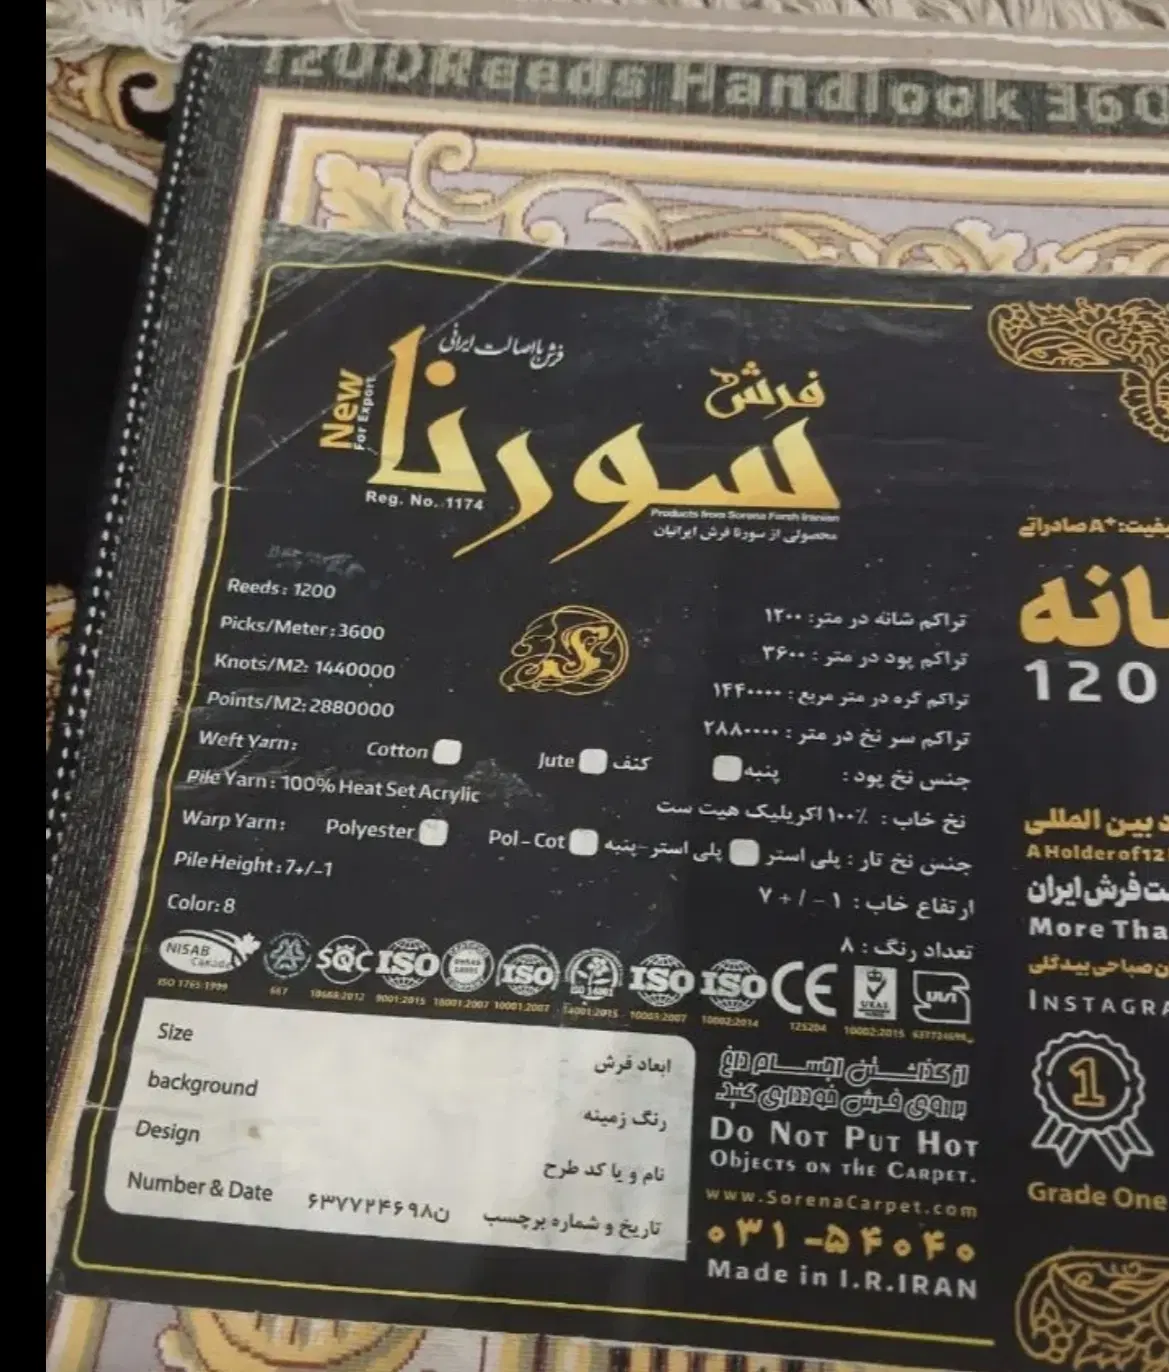 1200Reeds Handlook 360
فرش با اصالت ایرانی
New
For Export
فرش
سورنا
Reg. No. 1174
Products from Sorena Farsh Iranian
محصولی از سورنا فرش ایرانیان
Reeds: 1200
تراکم شانه در متر: ۱۲۰۰
Picks/Meter: 3600
تراکم پود در متر: ۳۶۰۰
Knots/M2: 1440000
تراکم گره در متر مربع: ۱۴۴۰۰۰۰
Points/M2: 2880000
تراکم سر نخ در متر: ۲۸۸۰۰۰۰
Weft Yarn: Cotton Jute کنف پنبه جنس نخ پود:
Pile Yarn: 100% Heat Set Acrylic
نخ خاب: ۱۰۰٪ اکریلیک هیت ست
Warp Yarn: Polyester Pol-Cot پلی استر-پنبه پلی استر جنس نخ تار:
Pile Height: 7+/-1
ارتفاع خاب: ۱-/+۷
Color: 8
تعداد رنگ: ۸
NISAB Canada SQC ISO ISO ISO ISO CE UKAS
ISO 1765:1999 667 10668:2012 9001:2015 18001:2007 10001:2007 14001:2015 10003:2007 10002:2014 125204 10002:2015
Size ابعاد فرش
background رنگ زمینه
Design نام و یا کد طرح
Number & Date ۶۳۷۷۲۴۶۹۸ن تاریخ و شماره برچسب
از گذاشتن اجسام داغ
بر روی فرش خودداری کنید.
Do Not Put Hot
Objects on the Carpet.
www.SorenaCarpet.com
۰۳۱-۵۴۰۴۰
Made in I.R.IRAN
A* صادراتی
انه
120
بین المللی
A Holder of 12
فرش ایران
More Tha
صباحی بیدگلی
INSTAGRA
1
Grade One